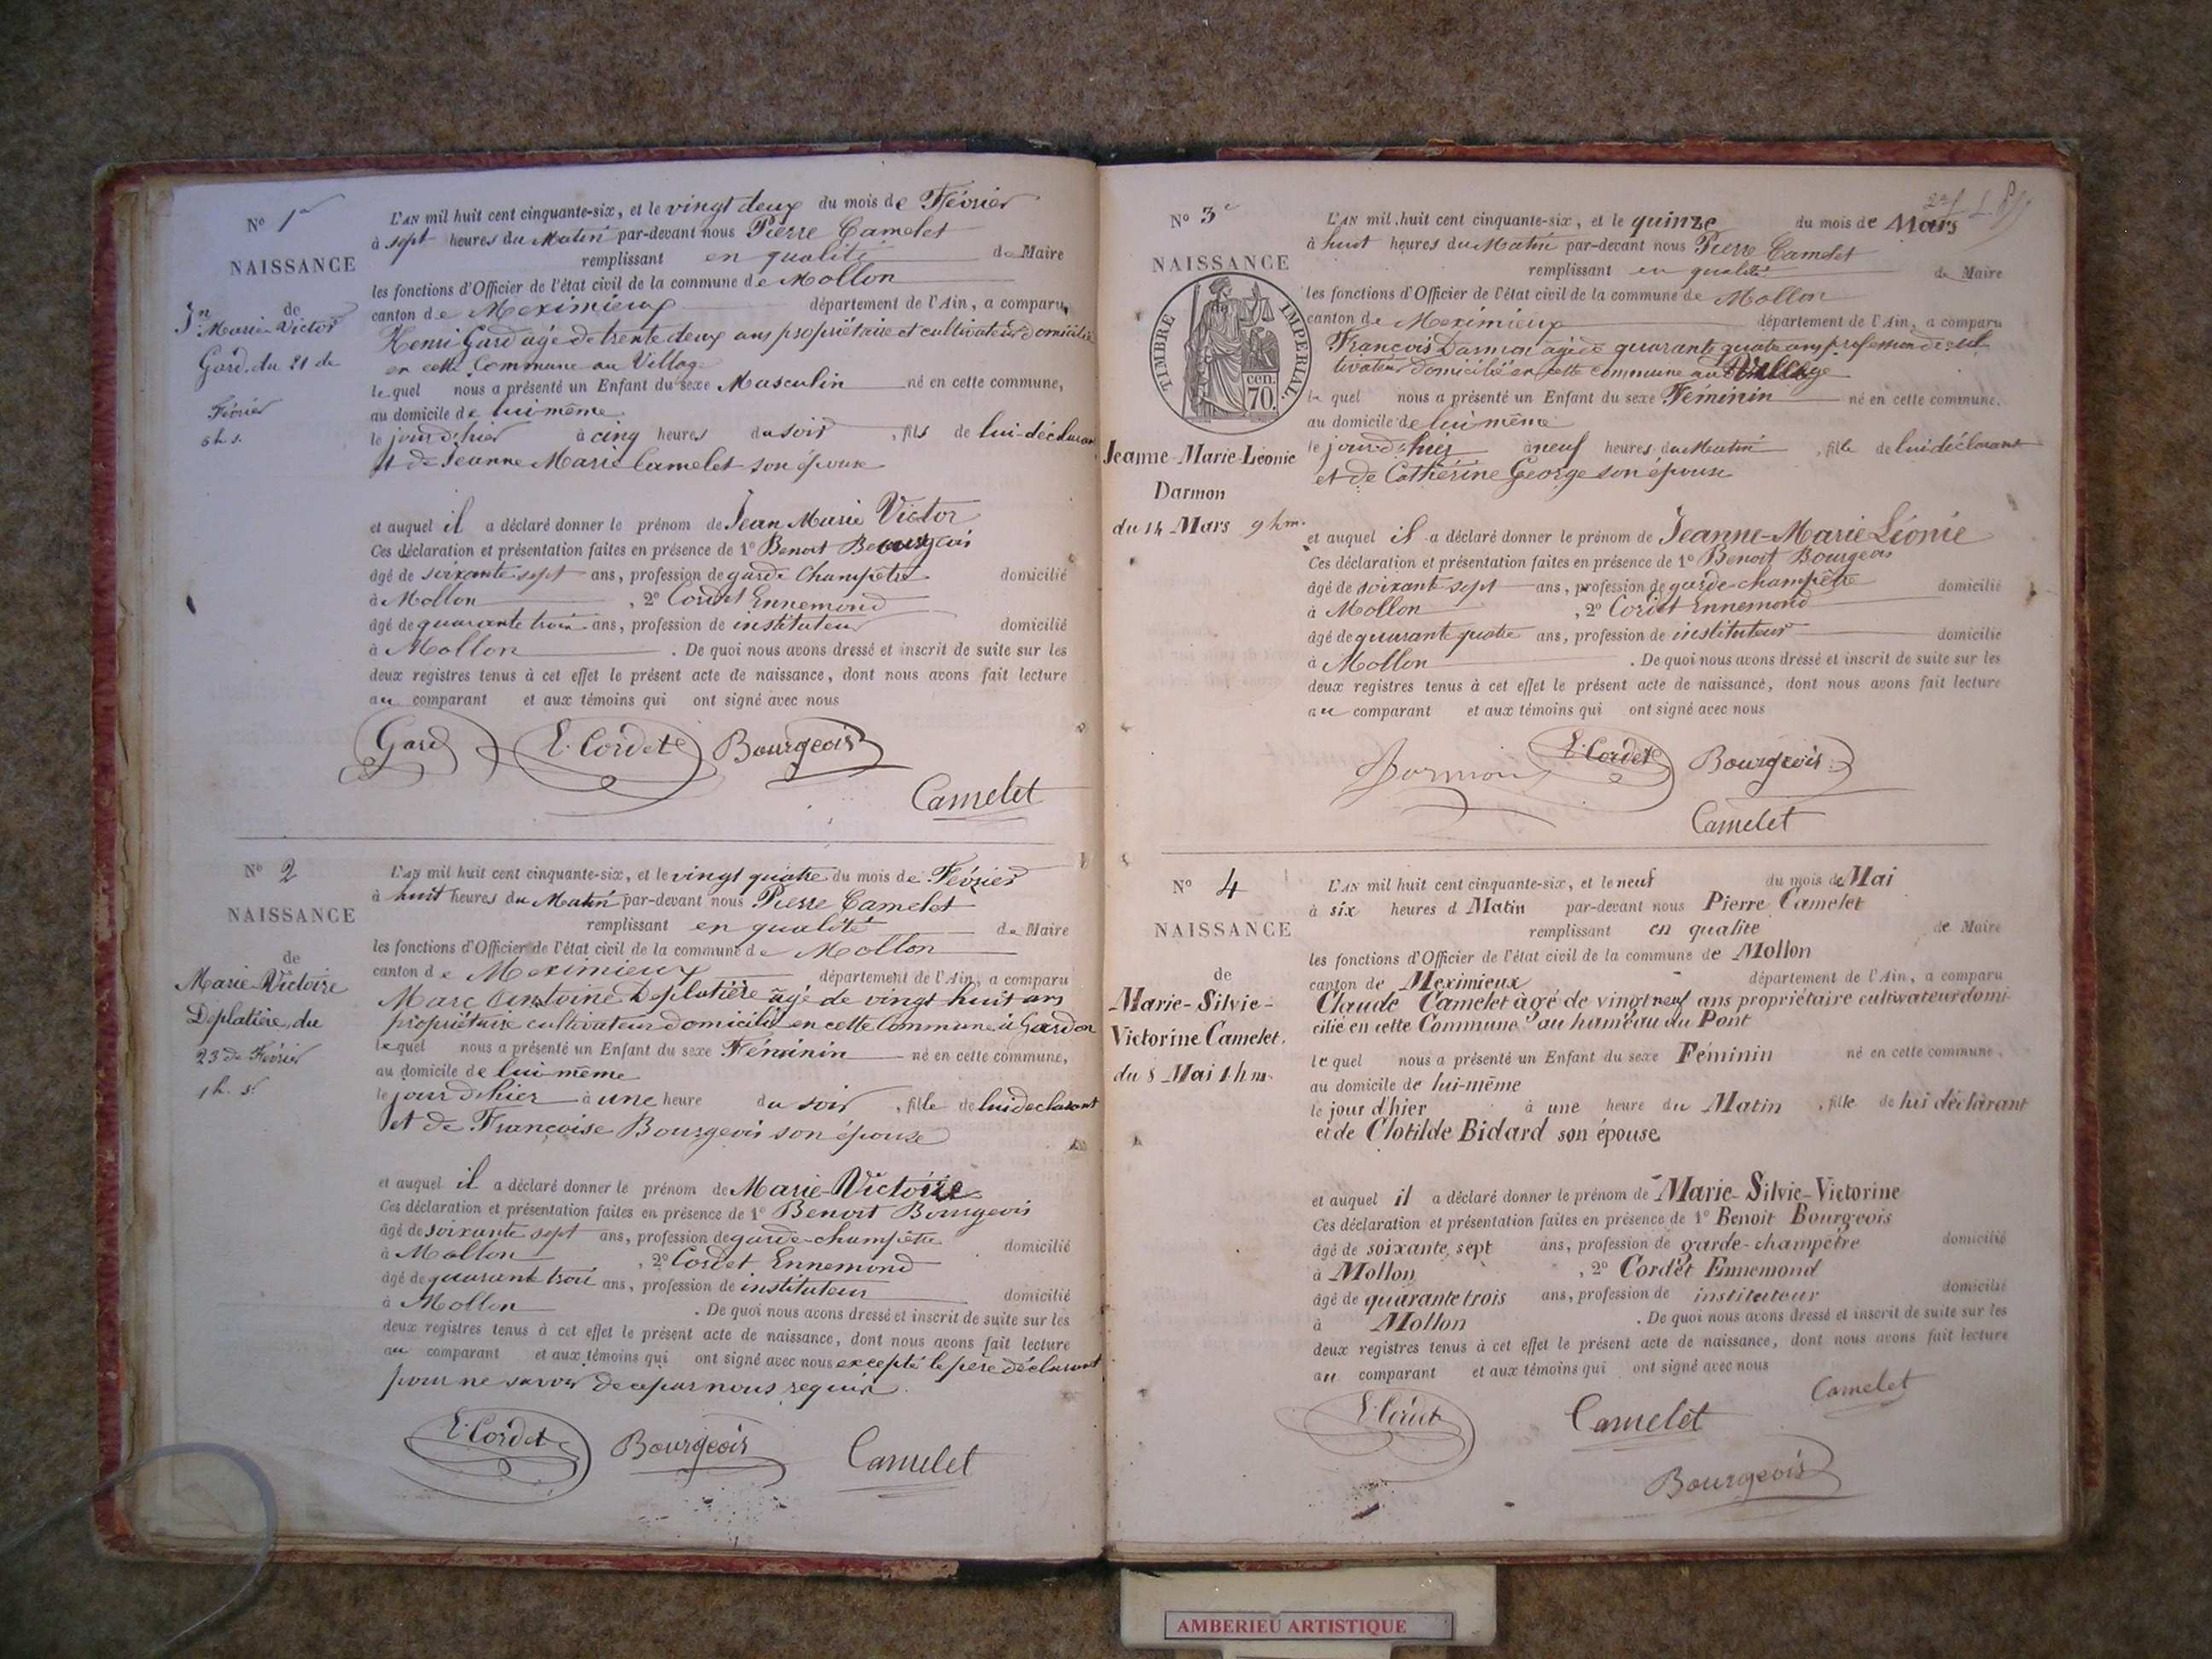 N° 1er
NAISSANCE
de
Jn Marie Victor
Gard, du 21 de
Février
5 h. s.
L'AN mil huit cent cinquante-six, et le vingt deux du mois de Février
à sept heures du Matin par-devant nous Pierre Camelet
remplissant en qualité de Maire
les fonctions d'Officier de l'état civil de la commune de Mollon
canton de Meximieux département de l'Ain, a comparu
Henri Gard âgé de trente deux ans propriétaire et cultivateur domicilié
en cette Commune au Village
lequel nous a présenté un Enfant du sexe Masculin né en cette commune,
au domicile de lui même
le jour d'hier à cinq heures du soir, fils de lui déclarant
et de Jeanne Marie Camelet son épouse
et auquel il a déclaré donner le prénom de Jean Marie Victor
Ces déclaration et présentation faites en présence de 1° Benoit Bourgeois
âgé de soixante sept ans, profession de garde Champêtre domicilié
à Mollon, 2° Cordet Ennemond
âgé de quarante trois ans, profession de instituteur domicilié
à Mollon. De quoi nous avons dressé et inscrit de suite sur les
deux registres tenus à cet effet le présent acte de naissance, dont nous avons fait lecture
au comparant et aux témoins qui ont signé avec nous
Gard E. Cordet Bourgeois
Camelet
N° 2
NAISSANCE
de
Marie Victoire
Déplatière, du
23 de Février
1 h. s.
L'AN mil huit cent cinquante-six, et le vingt quatre du mois de Février
à huit heures du Matin par-devant nous Pierre Camelet
remplissant en qualité de Maire
les fonctions d'Officier de l'état civil de la commune de Mollon
canton de Meximieux département de l'Ain, a comparu
Marc Antoine Deplatière âgé de vingt huit ans
propriétaire cultivateur domicilié en cette Commune à Gardon
lequel nous a présenté un Enfant du sexe Féminin né en cette commune,
au domicile de lui même
le jour d'hier à une heure du soir, fille de lui declarant
et de Françoise Bourgeois son épouse
et auquel il a déclaré donner le prénom de Marie-Victoire
Ces déclaration et présentation faites en présence de 1° Benoit Bourgeois
âgé de soixante sept ans, profession de garde-champêtre domicilié
à Mollon, 2° Cordet Ennemond
âgé de quarante trois ans, profession de instituteur domicilié
à Mollon. De quoi nous avons dressé et inscrit de suite sur les
deux registres tenus à cet effet le présent acte de naissance, dont nous avons fait lecture
au comparant et aux témoins qui ont signé avec nous excepté le père déclarant
pour ne savoir de ce par nous requis.
E. Cordet Bourgeois Camelet
N° 3e
NAISSANCE
TIMBRE IMPÉRIAL.
cen.
70.
Jeanne-Marie-Léonie
Darmon
du 14 Mars 9 h m.
L'AN mil huit cent cinquante-six, et le quinze du mois de Mars
à huit heures du Matin par-devant nous Pierre Camelet
remplissant en qualité de Maire
les fonctions d'Officier de l'état civil de la commune de Mollon
canton de Meximieux département de l'Ain, a comparu
François Darmon âgé de quarante quatre ans profession de cul
tivateur domicilié en cette commune au Village
le quel nous a présenté un Enfant du sexe Féminin né en cette commune.
au domicile de lui même
le jour d'hier à neuf heures du Matin, fille de lui déclarant
et de Cathérine George son épouse
et auquel il a déclaré donner le prénom de Jeanne-Marie Léonie
Ces déclaration et présentation faites en présence de 1° Benoit Bourgeois
âgé de soixante sept ans, profession de garde-champêtre domicilié
à Mollon, 2° Cordet Ennemond
âgé de quarante quatre ans, profession de instituteur domicilié
à Mollon. De quoi nous avons dressé et inscrit de suite sur les
deux registres tenus à cet effet le présent acte de naissance, dont nous avons fait lecture
au comparant et aux témoins qui ont signé avec nous
Darmon E. Cordet Bourgeois
Camelet
N° 4
NAISSANCE
de
Marie-Silvie-
Victorine Camelet.
du 8 Mai 1 h m.
L'AN mil huit cent cinquante-six, et le neuf du mois de Mai
à six heures d Matin par-devant nous Pierre Camelet
remplissant en qualite de Maire
les fonctions d'Officier de l'état civil de la commune de Mollon
canton de Meximieux département de l'Ain, a comparu
Claude Camelet âgé de vingt neuf ans propriétaire cultivateur domi-
cilié en cette Commune au hameau du Pont
lequel nous a présenté un Enfant du sexe Féminin né en cette commune.
au domicile de lui-même
le jour d'hier à une heure du Matin, fille de lui déclarant
et de Clotilde Bidard son épouse
et auquel il a déclaré donner le prénom de Marie-Silvie-Victorine
Ces déclaration et présentation faites en présence de 1° Benoit Bourgeois
âgé de soixante sept ans, profession de garde-champêtre domicilié
à Mollon, 2° Cordet Ennemond
âgé de quarante trois ans, profession de instituteur domicilié
à Mollon. De quoi nous avons dressé et inscrit de suite sur les
deux registres tenus à cet effet le présent acte de naissance, dont nous avons fait lecture
au comparant et aux témoins qui ont signé avec nous
E. Cordet Camelet Camelet
Bourgeois
AMBERIEU ARTISTIQUE